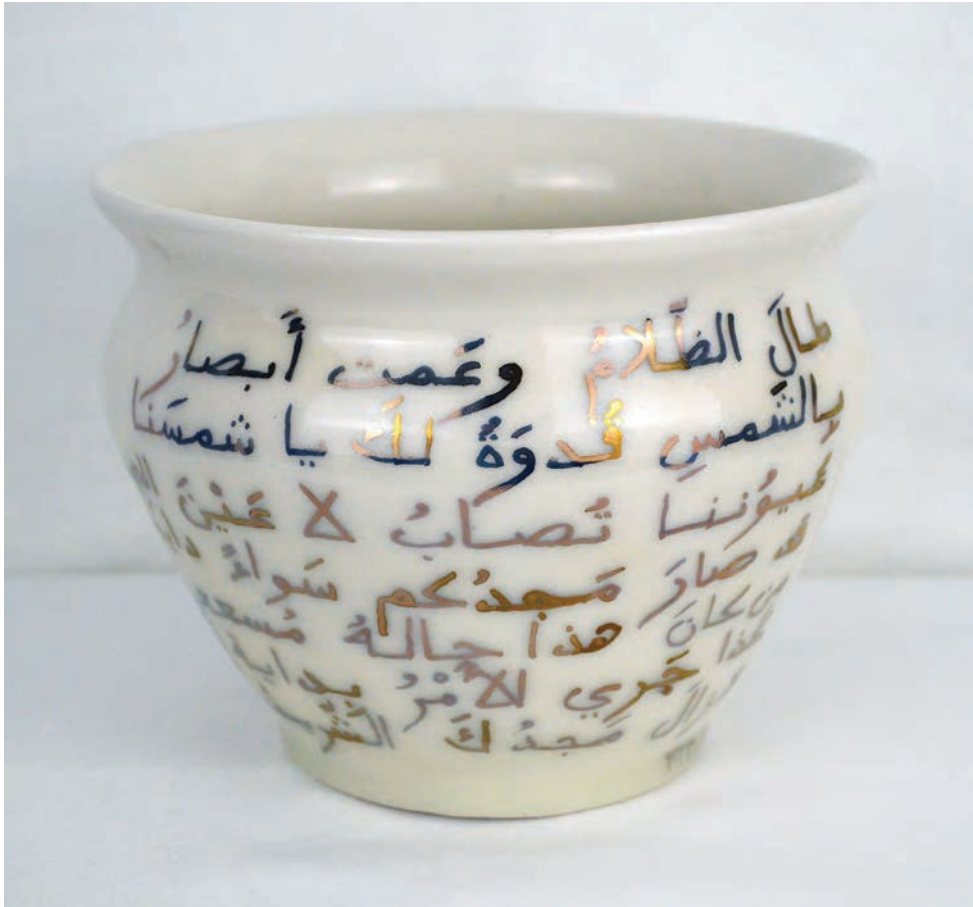 طالَ الظَّلامُ وعَمت أَبصارُ
بِالشَمسِ قُدوَةٌ لكَ يا شمسَنا
عيوُننا تُصابُ لا عَيْنَ
قد صارَ مَجدُكم سَواءً
من كانَ هذا حالهُ
هكذا جَرى الأَمْرُ بداية
مَجدُكَ